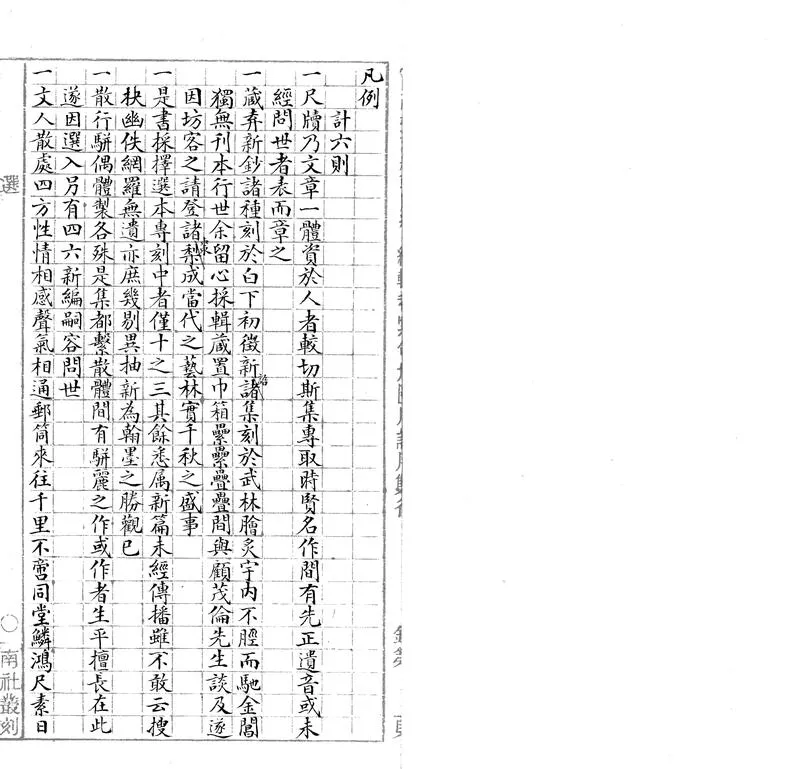 凡例
計六則
一尺牘乃文章一體資於人者較切斯集專取時賢名作間有先正遺音或未
經問世者表而章之
一藏弆新鈔諸種刻於白下初徵新諸集刻於武林膾炙宇内不脛而馳金閶
獨無刊本行世余留心採輯蔵置巾箱纍纍疊疊間與顧茂倫先生談及遂
因坊客之請登諸梨成當代之藝林實千秋之盛事
一是書採擇選本專刻中者僅十之三其餘悉属新篇未經傳播雖不敢云搜
秧幽佚網羅無遺亦庶幾剔異抽新為翰墨之勝觀已
一散行駢偶體製各殊是集都繫散體間有駢麗之作或作者生平擅長在此
遂因選入另有四六新編嗣容問世
一文人散處四方性情相感聲氣相通郵筒來往千里不啻同堂鱗鴻尺素日
選
〇
南社叢刻